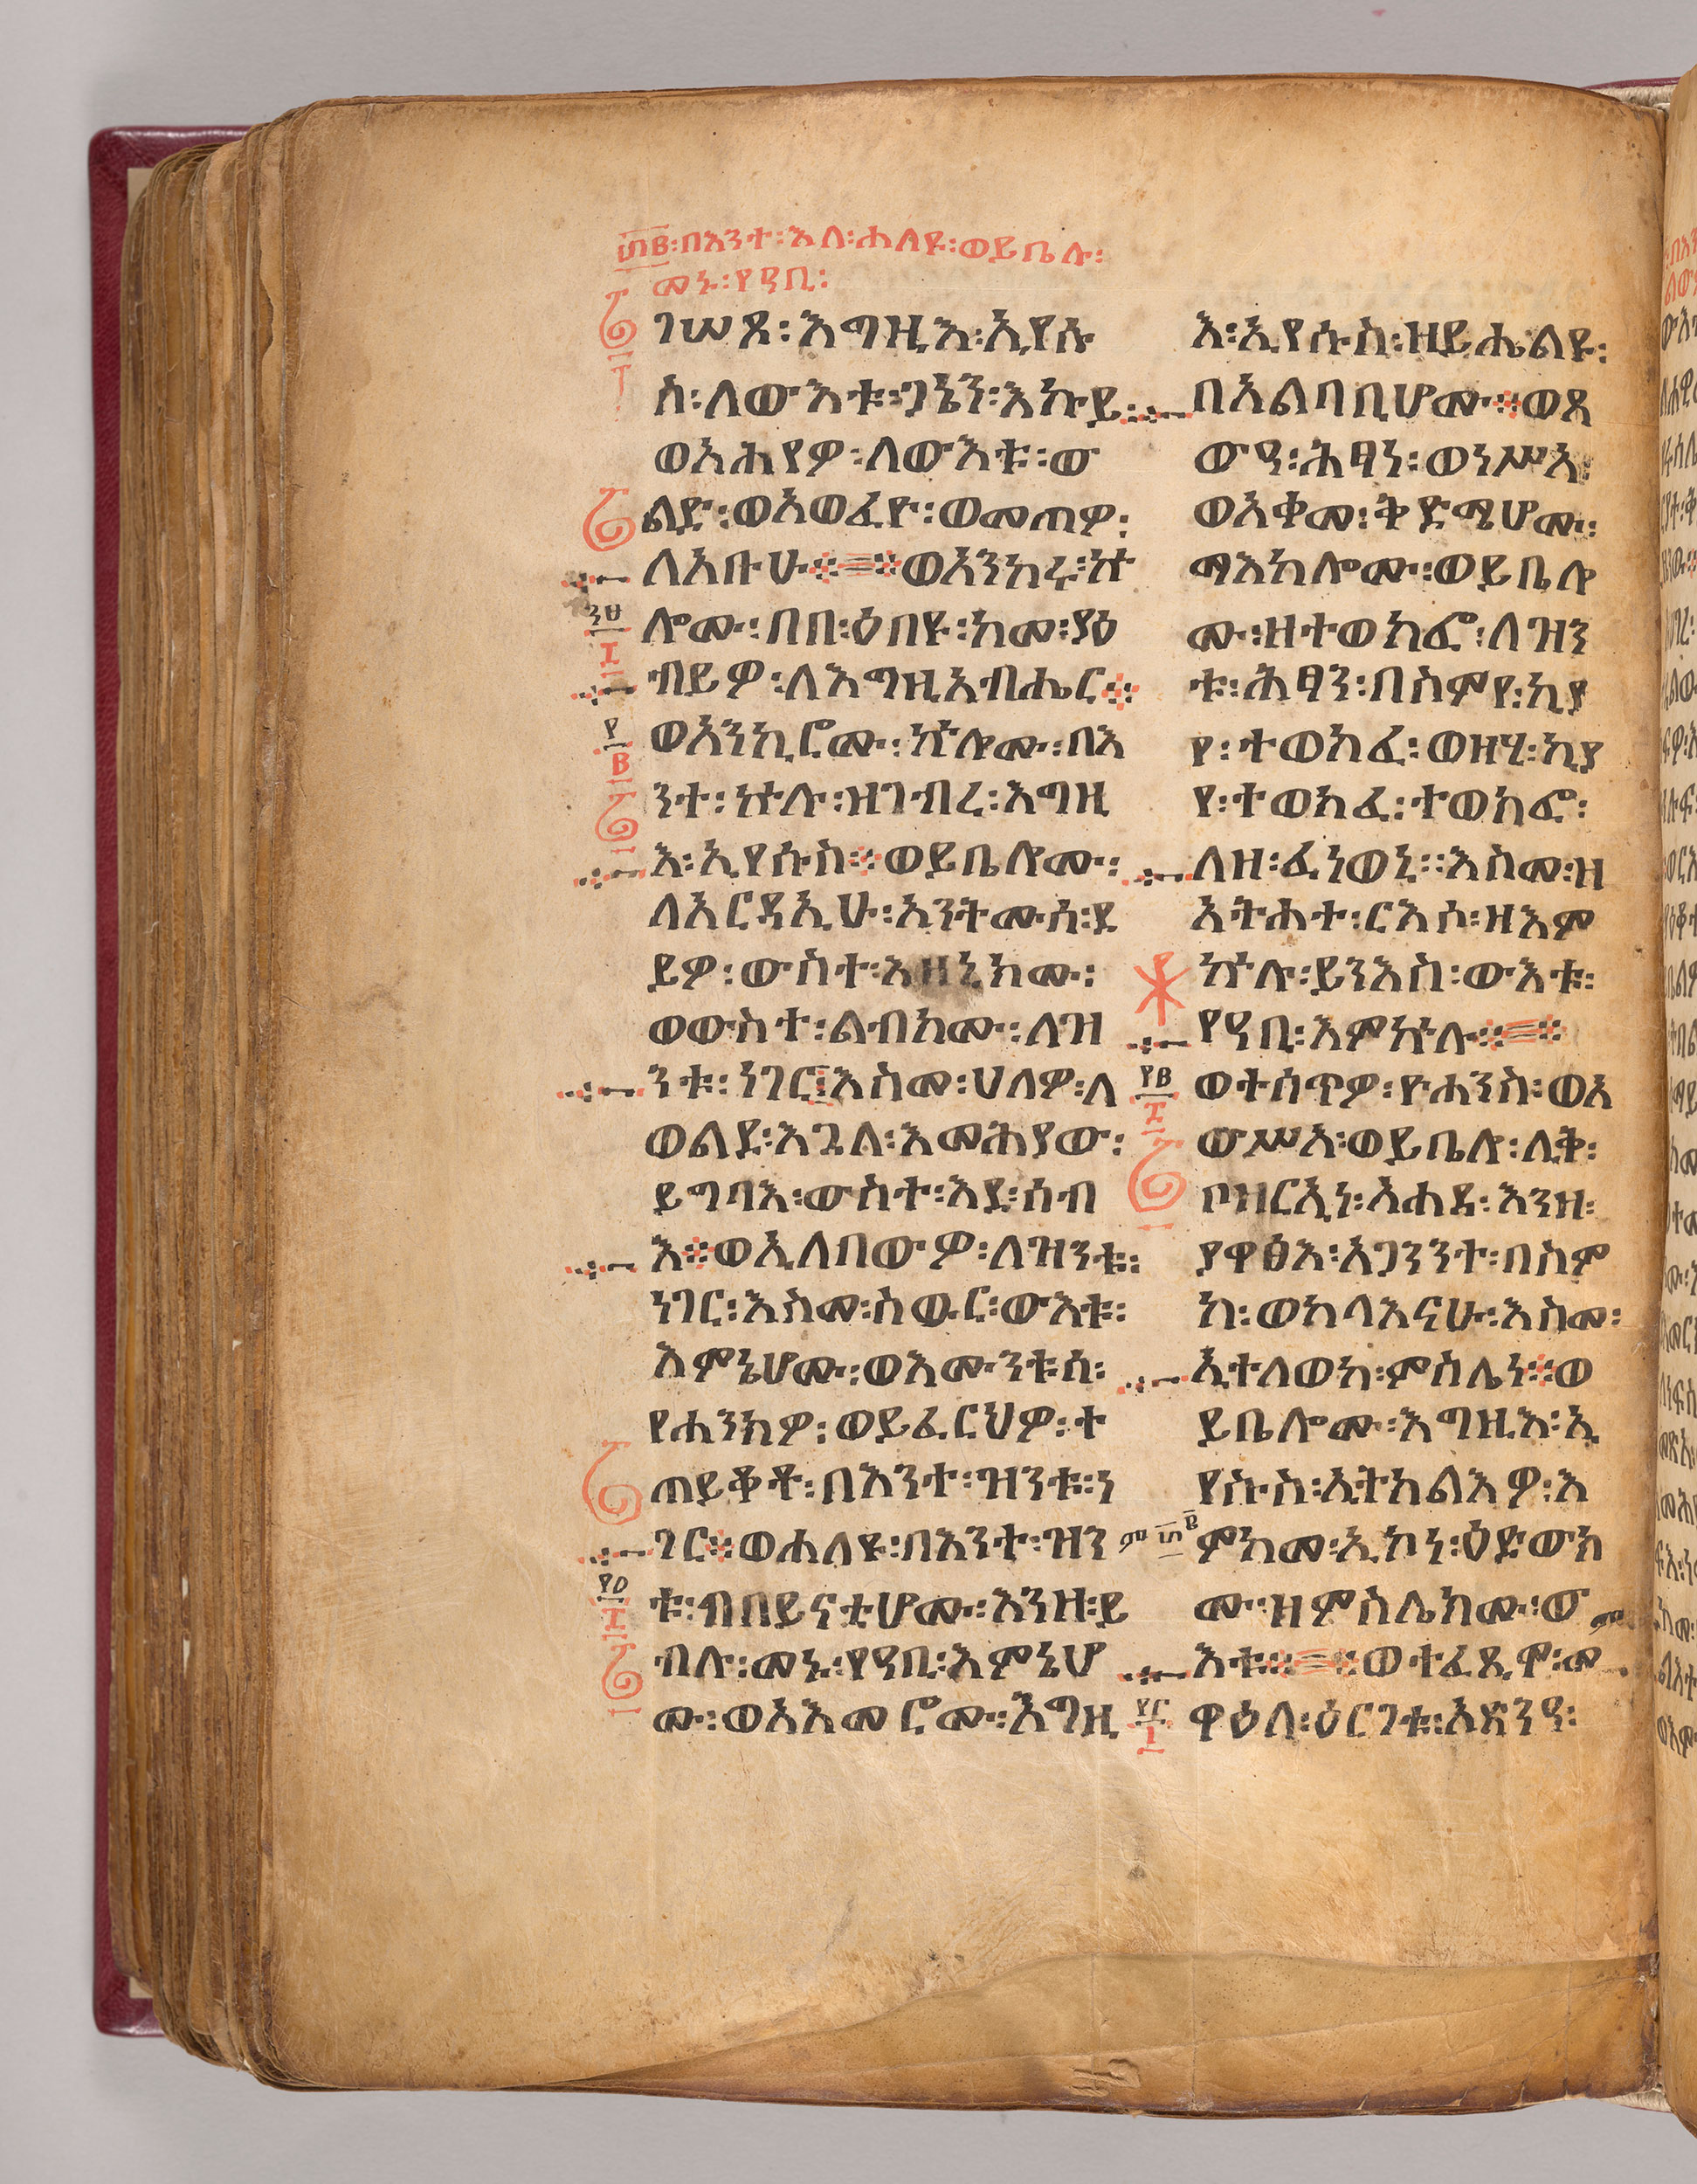 ፴፪፡በእንተ፡እለ፡ሐለዩ፡ወይቤሉ፡
መኑ፡የዓቢ፡
ገሠጾ፡እግዚእ፡ኢየሱ
ስ፡ለውእቱ፡ጋኔን፡እኩይ፡
ወአሕየዎ፡ለውእቱ፡ወ
ልድ፡ወአወፈዮ፡ወመጠዎ፡
ለአቡሁ፨ወአንከሩ፡ኵ
ሎሙ፡በበ፡ዕበዩ፡ከመ፡ያዕ
ብይዎ፡ለእግዚአብሔር፨
ወአንኪሮሙ፡ኵሎሙ፡በእ
ንተ፡ኵሉ፡ዝገብረ፡እግዚ
እ፡ኢየሱስ፨ወይቤሎሙ፡
ለአርዳኢሁ፡አንትሙሰ፡ደ
ይዎ፡ውስተ፡እዘኒክሙ፡
ወውስተ፡ልብክሙ፡ለዝ
ንቱ፡ነገር፡እስመ፡ሀለዎ፡ለ
ወልደ፡እጓለ፡እመሕያው፡
ይግባእ፡ውስተ፡እደ፡ሰብ
እ፨ወኢለበውዎ፡ለዝንቱ፡
ነገር፡እስመ፡ስዉር፡ውእቱ፡
እምኔሆሙ፡ወእሙንቱሰ፡
የሐንክዎ፡ወይፈርህዎ፡ተ
ጠይቆቶ፡በእንተ፡ዝንቱ፡ነ
ገር፨ወሐለዩ፡በእንተ፡ዝን
ቱ፡ብበይናቲሆሙ፡እንዘ፡ይ
ብሉ፡መኑ፡የዓቢ፡እምኔሆ
ሙ፡ወአእመሮሙ፡እግዚ
እ፡ኢየሱስ፡ዝይሔልዩ፡
በአልባቢሆሙ፨ወጸ
ውዓ፡ሕፃነ፡ወነሥአ፡
ወአቀመ፡ቅድሜሆሙ፡
ማእከሎሙ፡ወይቤሎ
ሙ፡ዘተወክፎ፡ለዝን
ቱ፡ሕፃን፡በስምየ፡ኪያ
የ፡ተወክፈ፡ወዘሂ፡ኪያ
የ፡ተወክፈ፡ተወክፎ፡
ለዘ፡ፈነወኒ፡፡እስመ፡ዘ
አትሐተ፡ርእሶ፡ዘእም
ኵሉ፡ይንእስ፡ውእቱ፡
የዓቢ፡እምኵሉ፨
ወተሰጥዎ፡ዮሐንስ፡ወአ
ውሥአ፡ወይቤሎ፡ሊቅ፡
ቦዝርኢነ፡አሐደ፡እንዘ፡
ያዋፅእ፡አጋንንተ፡በስም
ከ፡ወከላእናሁ፡እስመ፡
ኢተለወከ፡ምስሌነ፨ወ
ይቤሎሙ፡እግዚእ፡ኢ
የሱስ፡ኢትክልእዎ፡እ
ምከመ፡ኢኮነ፡ዕድውክ
ሙ፡ዝምስሌክሙ፡ው
እቱ፨ወተፈጺሞ፡መ
ዋዕለ፡ዕርገቱ፡አጽንዓ፡